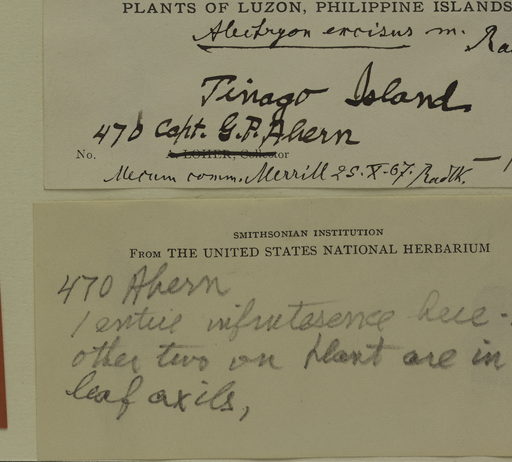 PLANTS OF LUZON, PHILIPPINE ISLANDS
Alectryon excisus m. Ra
Tinago Island
470 Capt. G.P. Ahern
No. A. LOHER, Collector
Mecum comm. Merrill 25.X.07. Radlk. —
SMITHSONIAN INSTITUTION
FROM THE UNITED STATES NATIONAL HERBARIUM
470 Ahern
1 entire infrutescence here -
other two on plant are in
leaf axils,